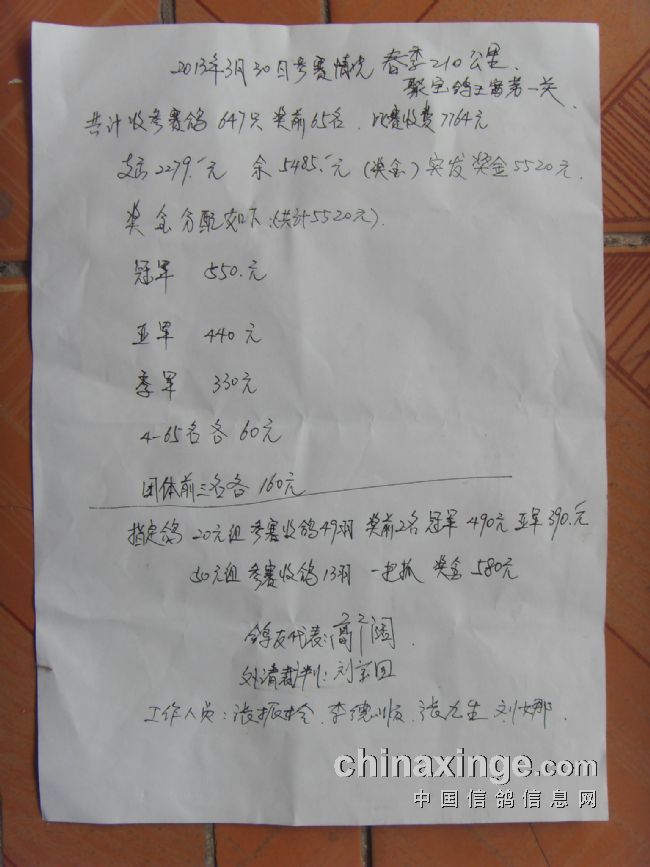 2013年3月30日参赛情况 春季210公里.
聚宝鸽王赛第一关
共计收参赛鸽647只 奖前65名. 比赛收费7764元
支出2279.元 余5485.元(奖金)实发奖金5520元.
奖金分配如下:(共计5520元)
冠军 550.元
亚军 440元
季军 330元
4-65名各60元
团体前三名各160元
指定鸽 20元组 参赛收鸽49羽 奖前2名冠军490元亚军390.元
50元组 参赛收鸽13羽 一把抓 奖金580元
鸽友代表:
外请裁判:刘宝国
工作人员:张振栓. 李德顺. 张友生 刘娜.
chinaxinge.com
中国信鸽信息网